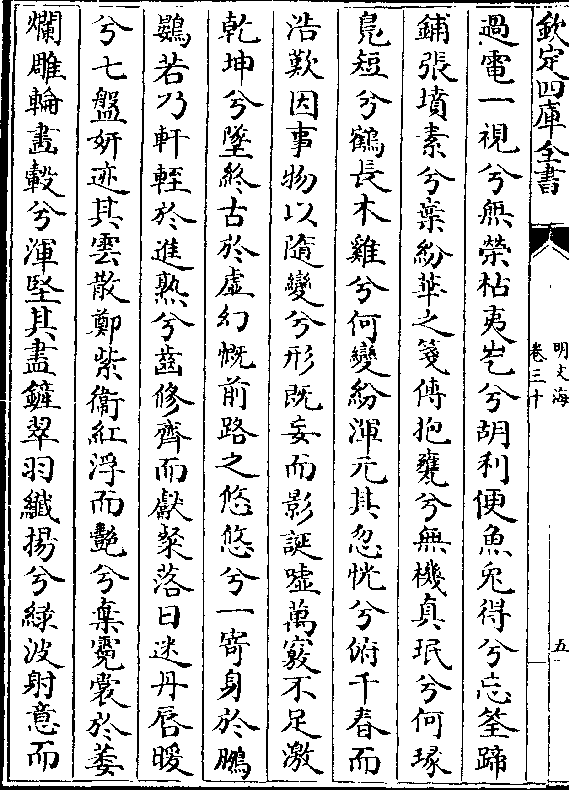 欽定四庫全書
明文海
卷三十
五
過電一視兮無榮枯夷岂兮胡利便魚兔得兮忘筌蹄
鋪張墳素兮棄紛華之箋傳抱甕兮無機真珉兮何琢
鳧短兮鶴長木雞兮何變紛渾元其忽恍兮俯千春而
浩歎因事物以隨變兮形既妄而影誕噓萬竅不足激
乾坤兮墜終古於虛幻慨前路之悠悠兮一寄身於鵬
鷃若乃軒輊於進熟兮齒修齊而獻粲落日迷丹唇暖
兮七盤妍迹其雲散鄭紫衞紅浮而艷兮棄霓裳於萎
爛雕輪畫轂兮渾堅其盡鏟翠羽纖揚兮綠波射意而